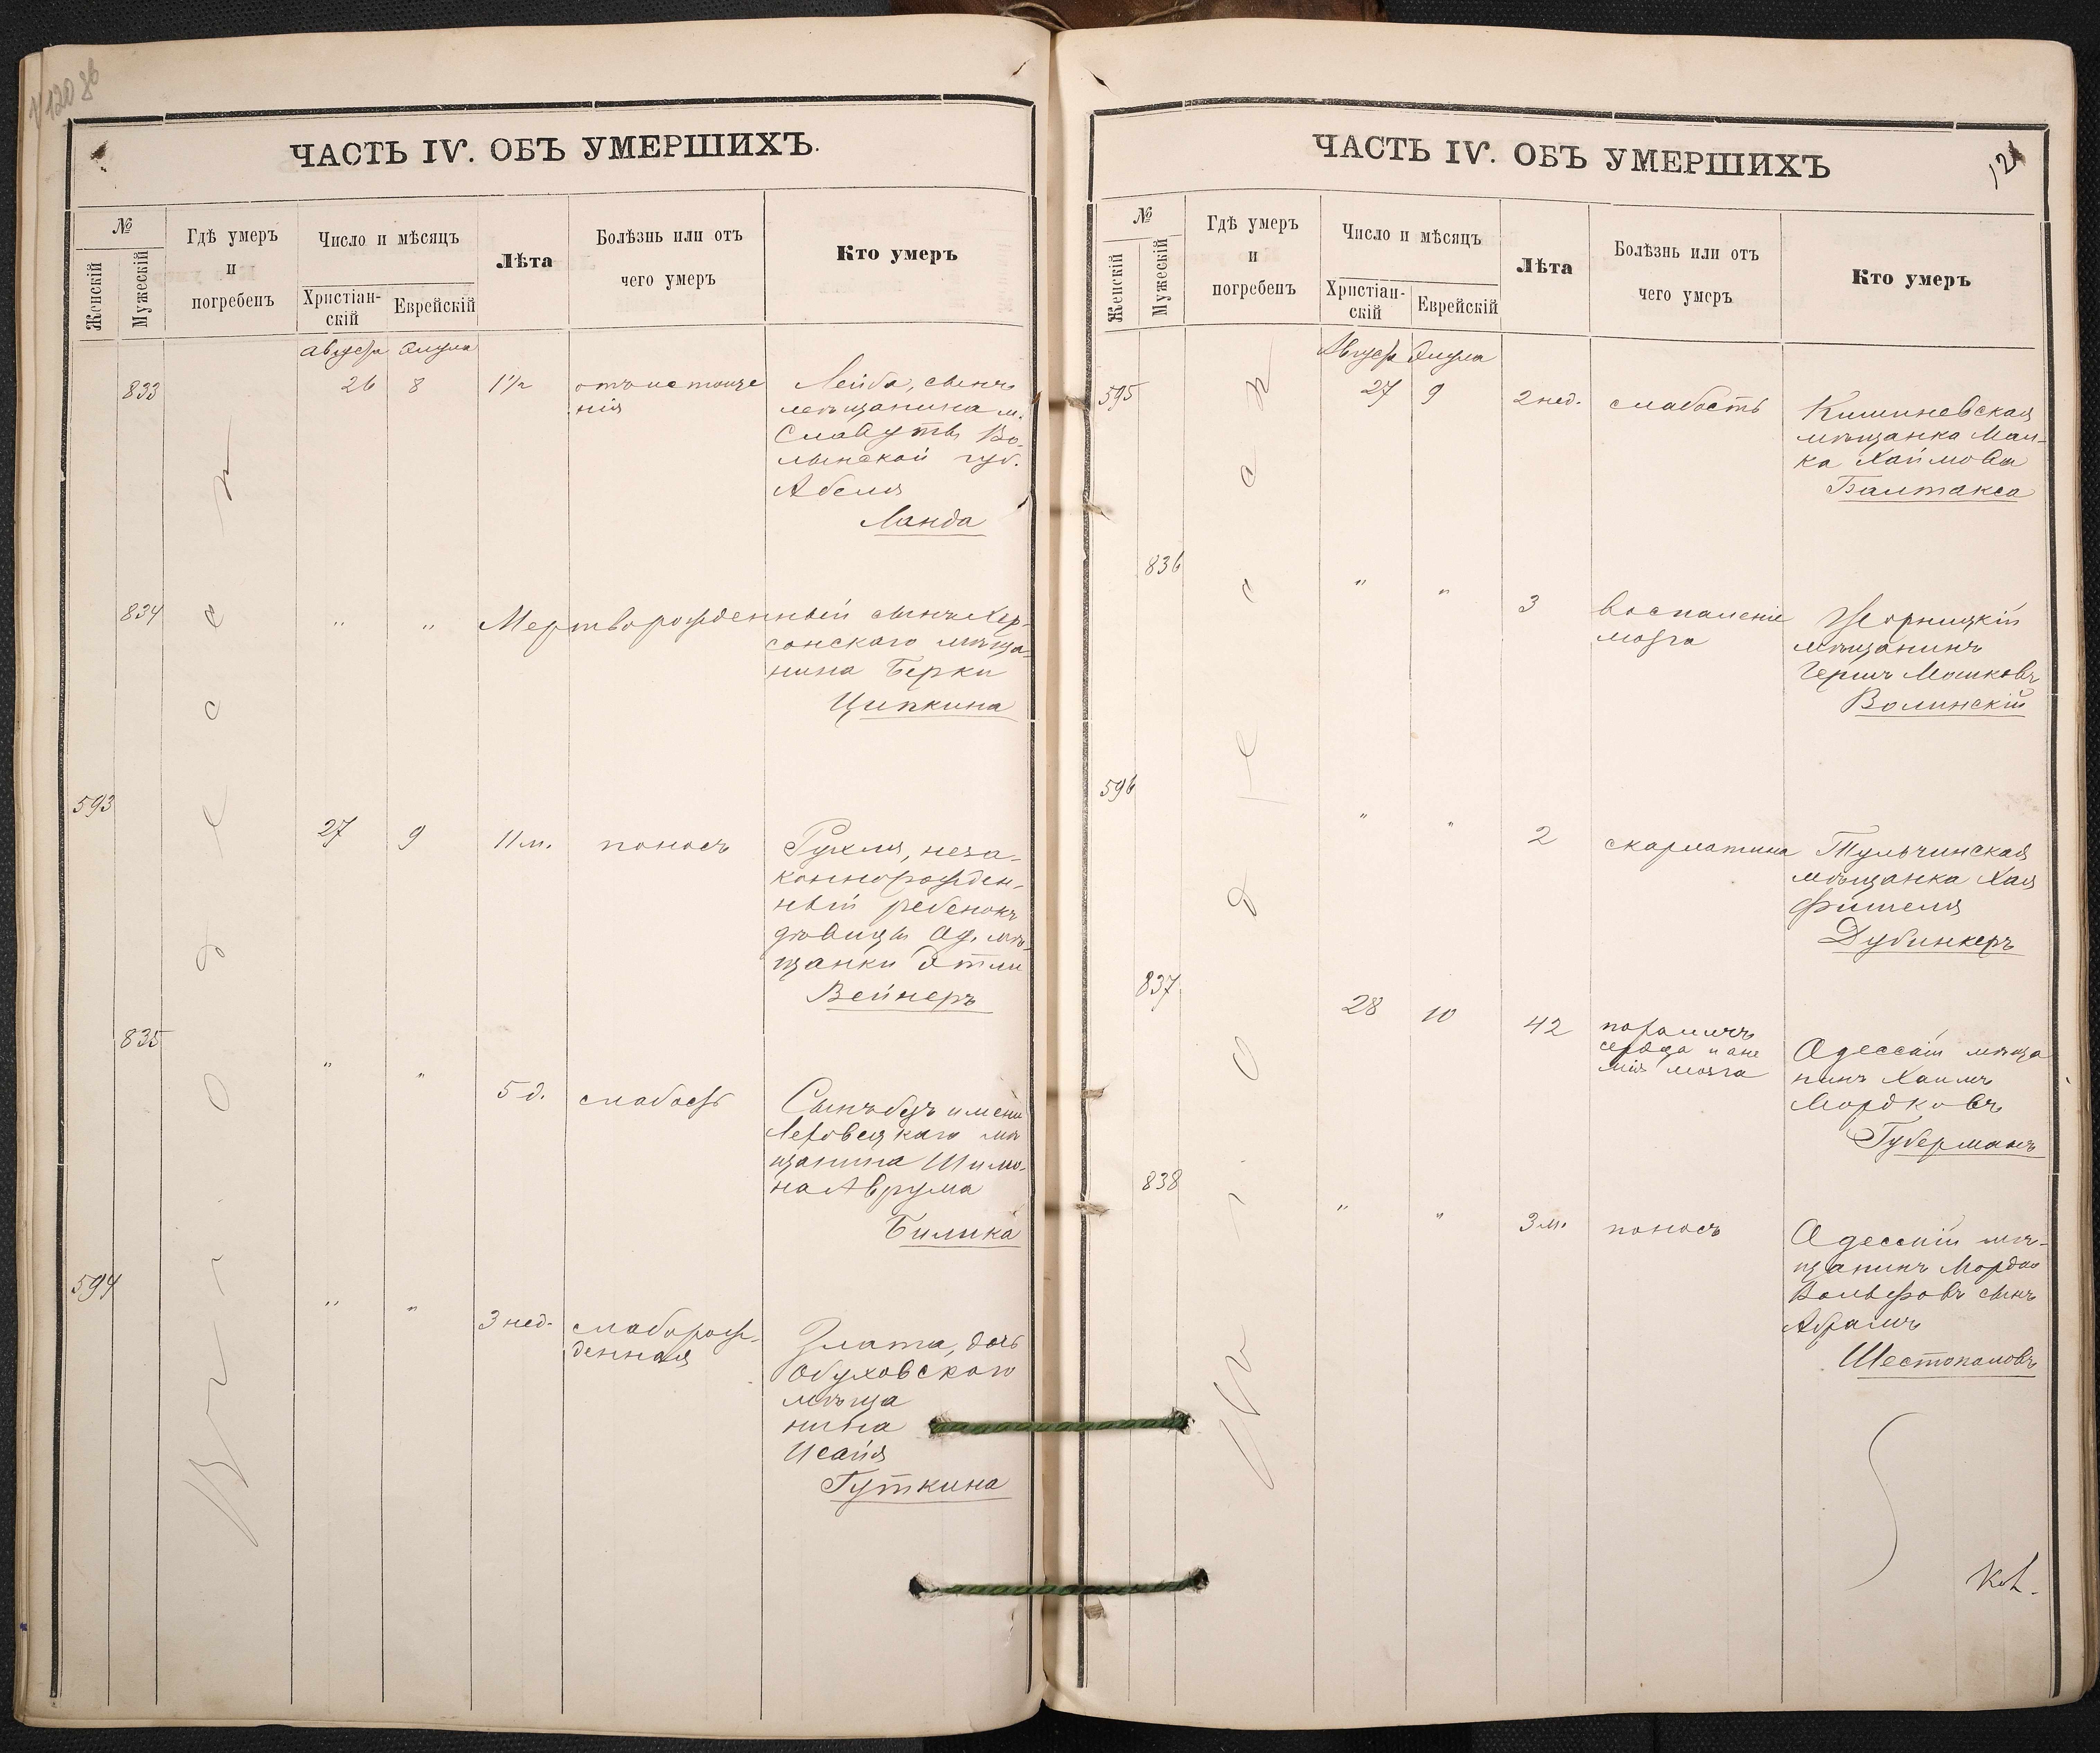 ЧАСТЬ IV. ОБЪ УМЕРШИХЪ.
№
Женскій
Мужескій
Гдѣ умеръ
и
погребенъ
Число и мѣсяцъ
Христіан-
скій
Еврейскій
Лѣта
Болѣзнь или отъ
чего умеръ
Кто умеръ
въ г. Одессѣ
Элула
833
26 8 1½
отъ истоще
нія
Лейба, сынъ
мѣщанина м.
Славуты Во-
лынской губ.
Абеля
Ланда
834 " "
Мертворожденный сынъ Хер-
сонскаго мѣща-
нина Берки
Ципкина
593
27 9 11 м. поносъ
Рухля, неза-
коннорожден-
ный ребенокъ
дѣвицы Од. мѣ-
щанки Этли
Вейнеръ
835
" " 5 д.
Сынъ безъ имени
мѣ
щанина Шимо-
на Аврума
Билика
594
" " 3 нед. слаборож-
денная
Злата, дочь
Обуховскаго
мѣща
нина
Исайя
Гуткина
ЧАСТЬ IV. ОБЪ УМЕРШИХЪ
121
№
Женскій
Мужескій
Гдѣ умеръ
и
погребенъ
Число и мѣсяцъ
Христіан-
скій
Еврейскій
Лѣта
Болѣзнь или отъ
чего умеръ
Кто умеръ
Элула
595
27 9 2 нед. слабость
Кишиневская
мѣщанка Мал-
ка Хаимова
Балтакса
836
" " 3 воспаленіе
мозга
мѣщанинъ
Гершъ Мошковъ
Волинскій
596
" " 2 скарлатина
Тульчинская
мѣщанка Хая
Фишеля
Дубинкеръ
837
28 10 42 параличъ
сердца и ане
мія мозга
Одесскій мѣща
нинъ Хаимъ
Мордковъ
Губерманъ
838
" " 3 м. поносъ
Одесскій мѣ-
щанинъ
Вольфовъ сынъ
Абрамъ
Шестопаловъ